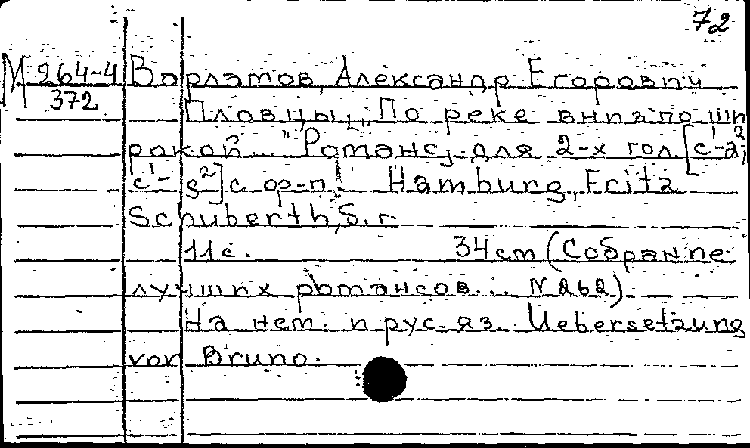 72
М 264-4 Варламов, Александр Егорович
372
Пловцы. "По реке вниз по ши-
рокой..." Романс для 2-х гол. [c¹-a²;
c¹-g²] с ф-п. Hamburg, Fritz
Schuberth, S. г.
11 с. 34 cm (Собрание
лучших романсов... N 262)
На нем. и рус. яз. Uebersetzung
von Bruno.